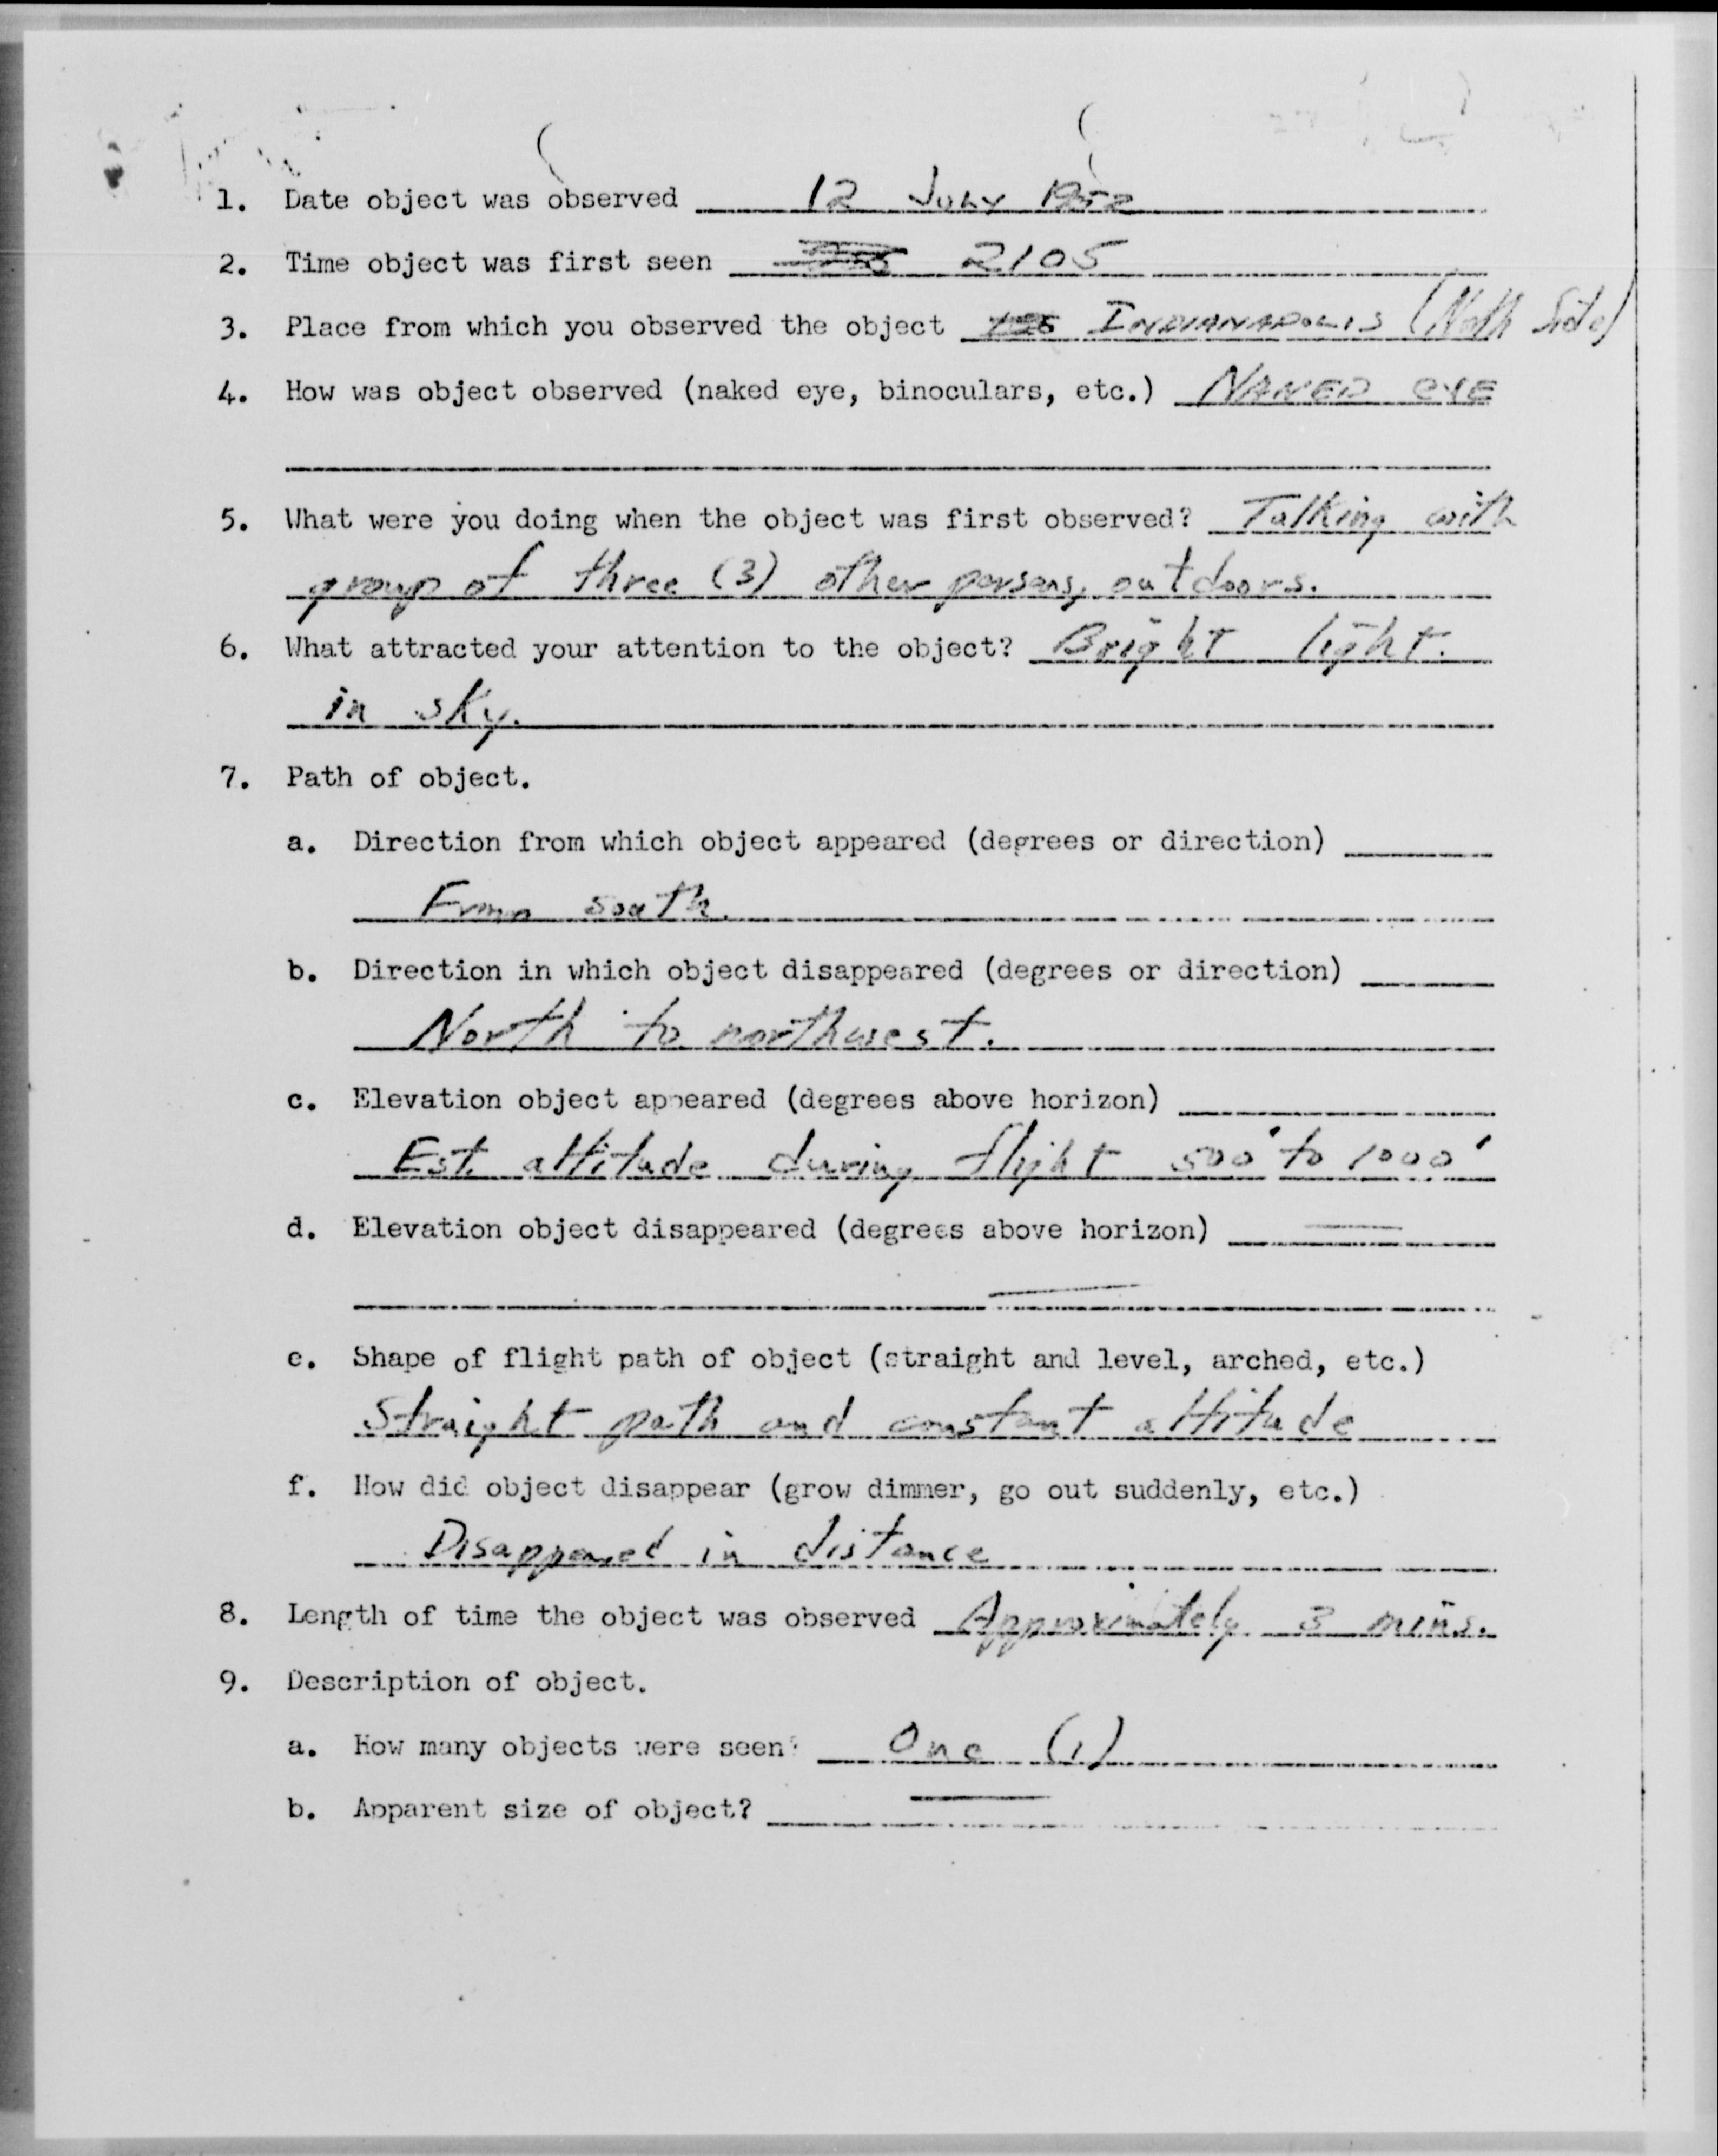 1. Date object was observed 12 July 1952
2. Time object was first seen 2105
3. Place from which you observed the object INDIANAPOLIS (North Side)
4. How was object observed (naked eye, binoculars, etc.) NAKED EYE
5. What were you doing when the object was first observed? Talking with
group of three (3) other persons, outdoors.
6. What attracted your attention to the object? Bright light
in sky.
7. Path of object.
a. Direction from which object appeared (degrees or direction)
From south.
b. Direction in which object disappeared (degrees or direction)
North to northwest.
c. Elevation object appeared (degrees above horizon)
Est. altitude during flight 500' to 1000'
d. Elevation object disappeared (degrees above horizon) —
—
e. Shape of flight path of object (straight and level, arched, etc.)
Straight path and constant altitude
f. How did object disappear (grow dimmer, go out suddenly, etc.)
Disappeared in distance
8. Length of time the object was observed Approximately 3 mins.
9. Description of object.
a. How many objects were seen? One (1)
b. Apparent size of object? —